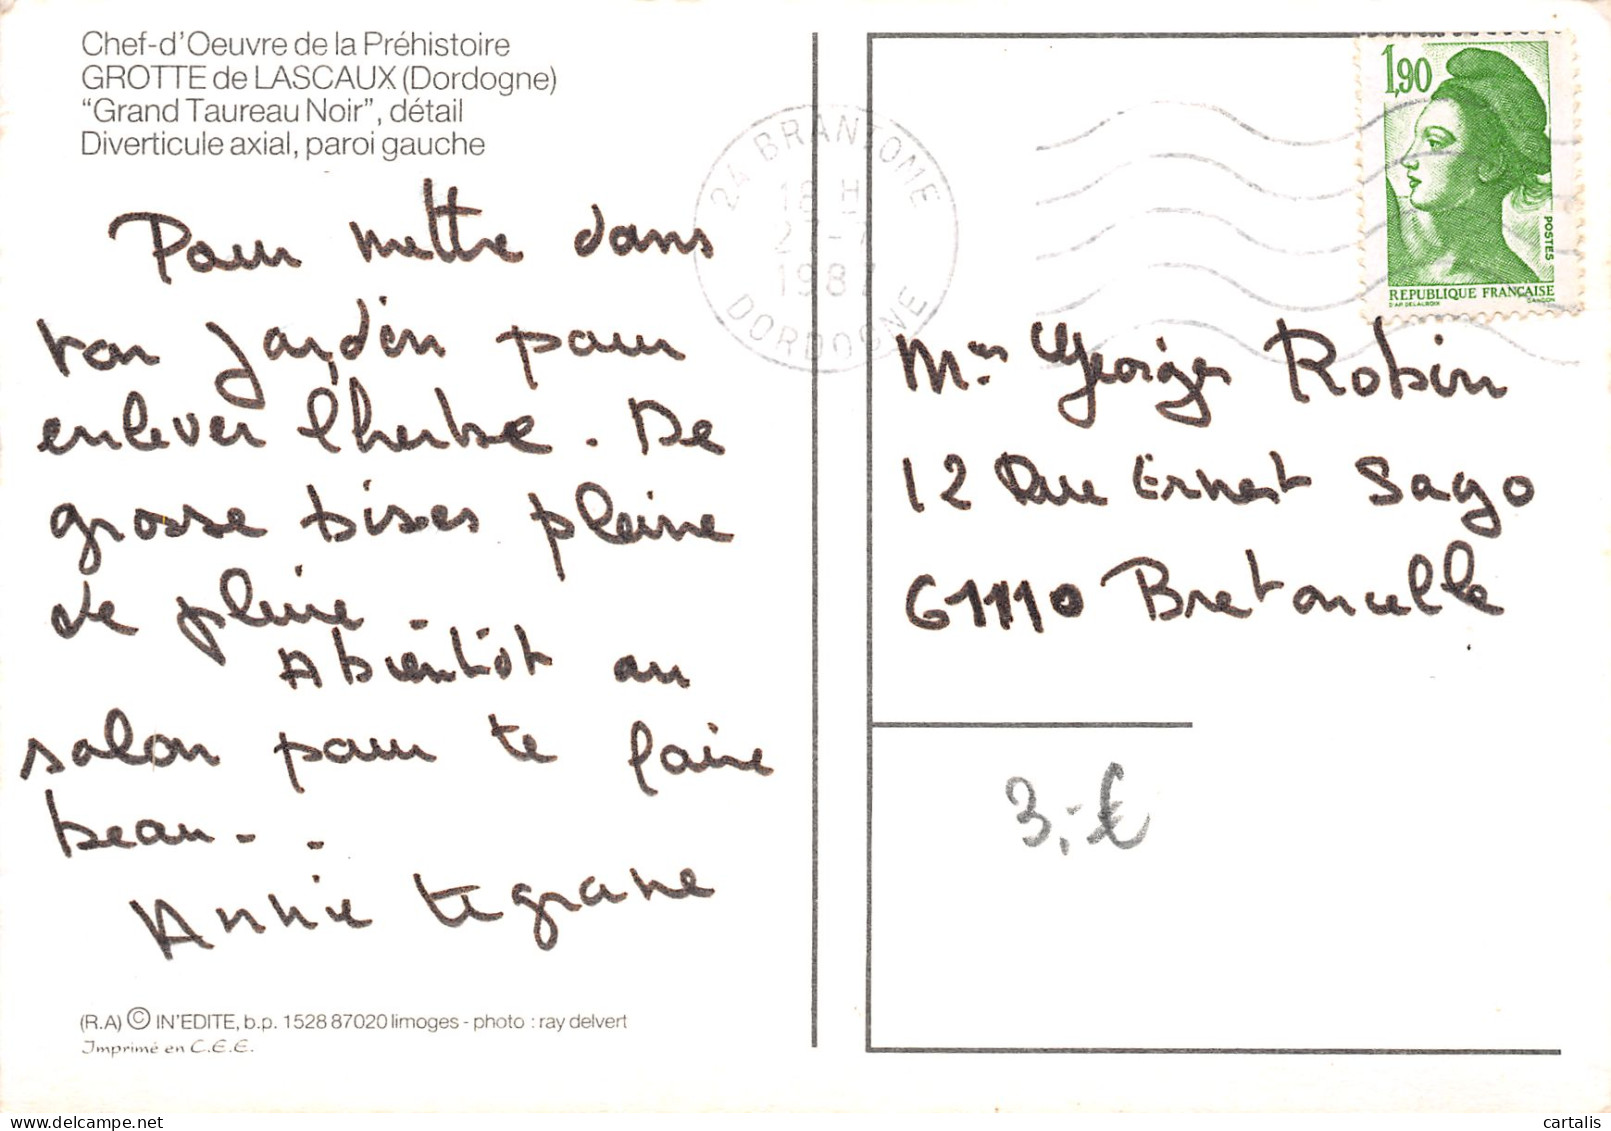 Chef-d'Oeuvre de la Préhistoire
GROTTE de LASCAUX (Dordogne)
"Grand Taureau Noir", détail
Diverticule axial, paroi gauche
Pour mettre dans
ton jardin pour
enlever l'herbe. De
grosse bises pleine
de pleine.
A bientôt au
salon pour te faire
beau - .
Annie
(R.A) © IN'EDITE, b.p. 1528 87020 limoges - photo : ray delvert
Imprimé en C.E.E.
24 BRANTOME
18 H
1987
DORDOGNE
1,90
POSTES
REPUBLIQUE FRANÇAISE
D'AP. DELACROIX GANDON
Georges Robin
12 Rue Ernest Sago
61110 Bretoncelle
3,-€
cartalis